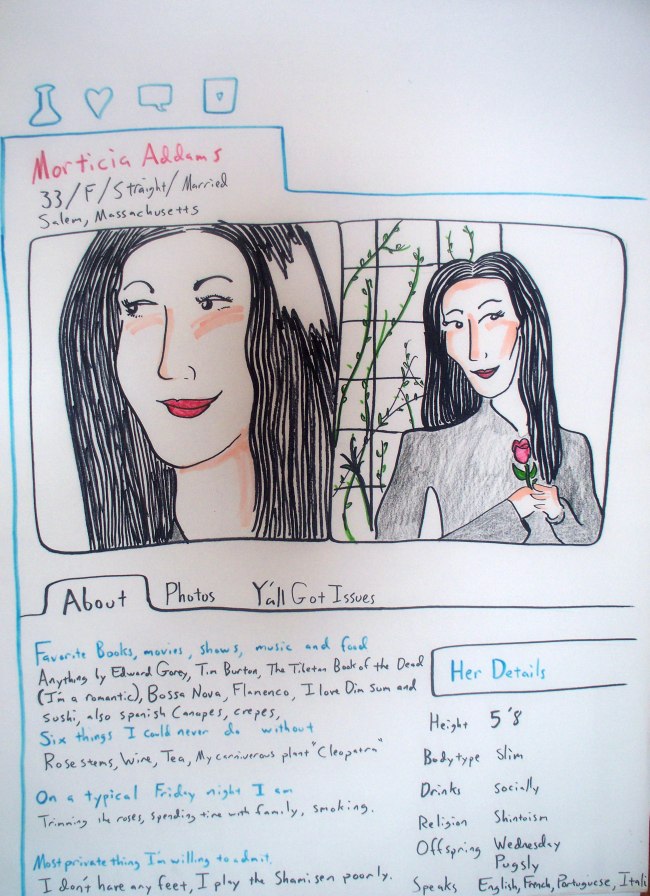 Morticia Addams
33/F/Straight/Married
Salem, Massachusetts
About
Photos
Y'all Got Issues
Favorite Books, movies, shows, music and food
Anything by Edward Gorey, Tim Burton, The Tibetan Book of the Dead
(I'm a romantic), Bossa Nova, Flamenco, I love Dim Sum and
sushi, also spanish Canapes, crepes,
Six things I could never do without
Rose stems, Wine, Tea, My carniverous plant "Cleopatra"
On a typical Friday night I am
Trimming the roses, spending time with family, smoking.
Most private thing I'm willing to admit.
I don't have any feet, I play the Shamisen poorly.
Her Details
Height 5'8
Bodytype Slim
Drinks Socially
Religion Shintoism
Offspring Wednesday
Pugsly
Speaks English, French, Portuguese, Itali